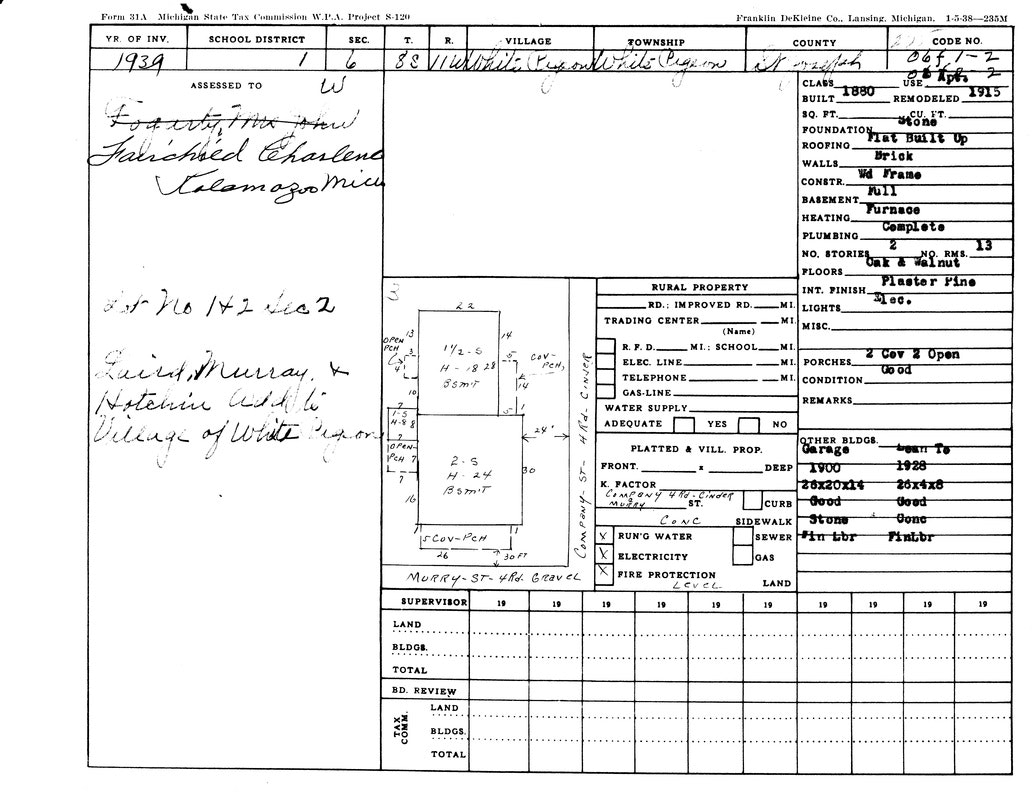 Form 31A Michigan State Tax Commission W.P.A. Project S-120
Franklin DeKleine Co., Lansing, Michigan. 1-5-38—235M
YR. OF INV. SCHOOL DISTRICT SEC. T. R. VILLAGE TOWNSHIP COUNTY CODE NO.
1939 1 6 8S 11W White Pigeon White Pigeon St Joseph 06f.1-2
ASSESSED TO W
Fogarty, Mrs John
Fairchied Charlene
Kalamazoo Mich
Lot No 1+2 Sec 2
Laird, Murray, +
Hotchin Add. to
Village of White Pigeon
CLASS USE Apt.
BUILT 1880 REMODELED 1915
SQ. FT. CU. FT.
FOUNDATION Stone
ROOFING Flat Built Up
WALLS Brick
CONSTR. Wd Frame
BASEMENT Full
HEATING Furnace
PLUMBING Complete
NO. STORIES 2 NO. RMS. 13
FLOORS Oak & Walnut
INT. FINISH Plaster Pine
LIGHTS Elec.
MISC.
PORCHES 2 Cov 2 Open
CONDITION Good
REMARKS
OTHER BLDGS.
Garage Lean To
1900 1928
26x20x14 26x4x8
Good Good
Stone Conc
Fin Lbr FinLbr
3
22
13 14
OPEN PCH
3
4
1 1/2-S
H-18 28
BSMT
5
COV-PCH,
2
14
10
7
5 1
1-S
H-8 8
7
24'
OPEN-PCH
7 7
2-S
H-24
BSMT
30
16
1 1
5 COV-PCH
26 30FT
COMPANY-ST-4Rd-CINDER
MURRY-ST-4Rd. GRAVEL
RURAL PROPERTY
RD.; IMPROVED RD. MI.
TRADING CENTER MI.
(Name)
R. F. D. MI.; SCHOOL MI.
ELEC. LINE MI.
TELEPHONE MI.
GAS-LINE
WATER SUPPLY
ADEQUATE YES NO
PLATTED & VILL. PROP.
FRONT. x DEEP
K. FACTOR
COMPANY 4Rd-CINDER
MURRY ST. CURB
CONC SIDEWALK
X RUN'G WATER SEWER
X ELECTRICITY GAS
X FIRE PROTECTION
LEVEL LAND
SUPERVISOR 19 19 19 19 19 19 19 19 19 19
LAND
BLDGS.
TOTAL
BD. REVIEW
TAX COMM.
LAND
BLDGS.
TOTAL